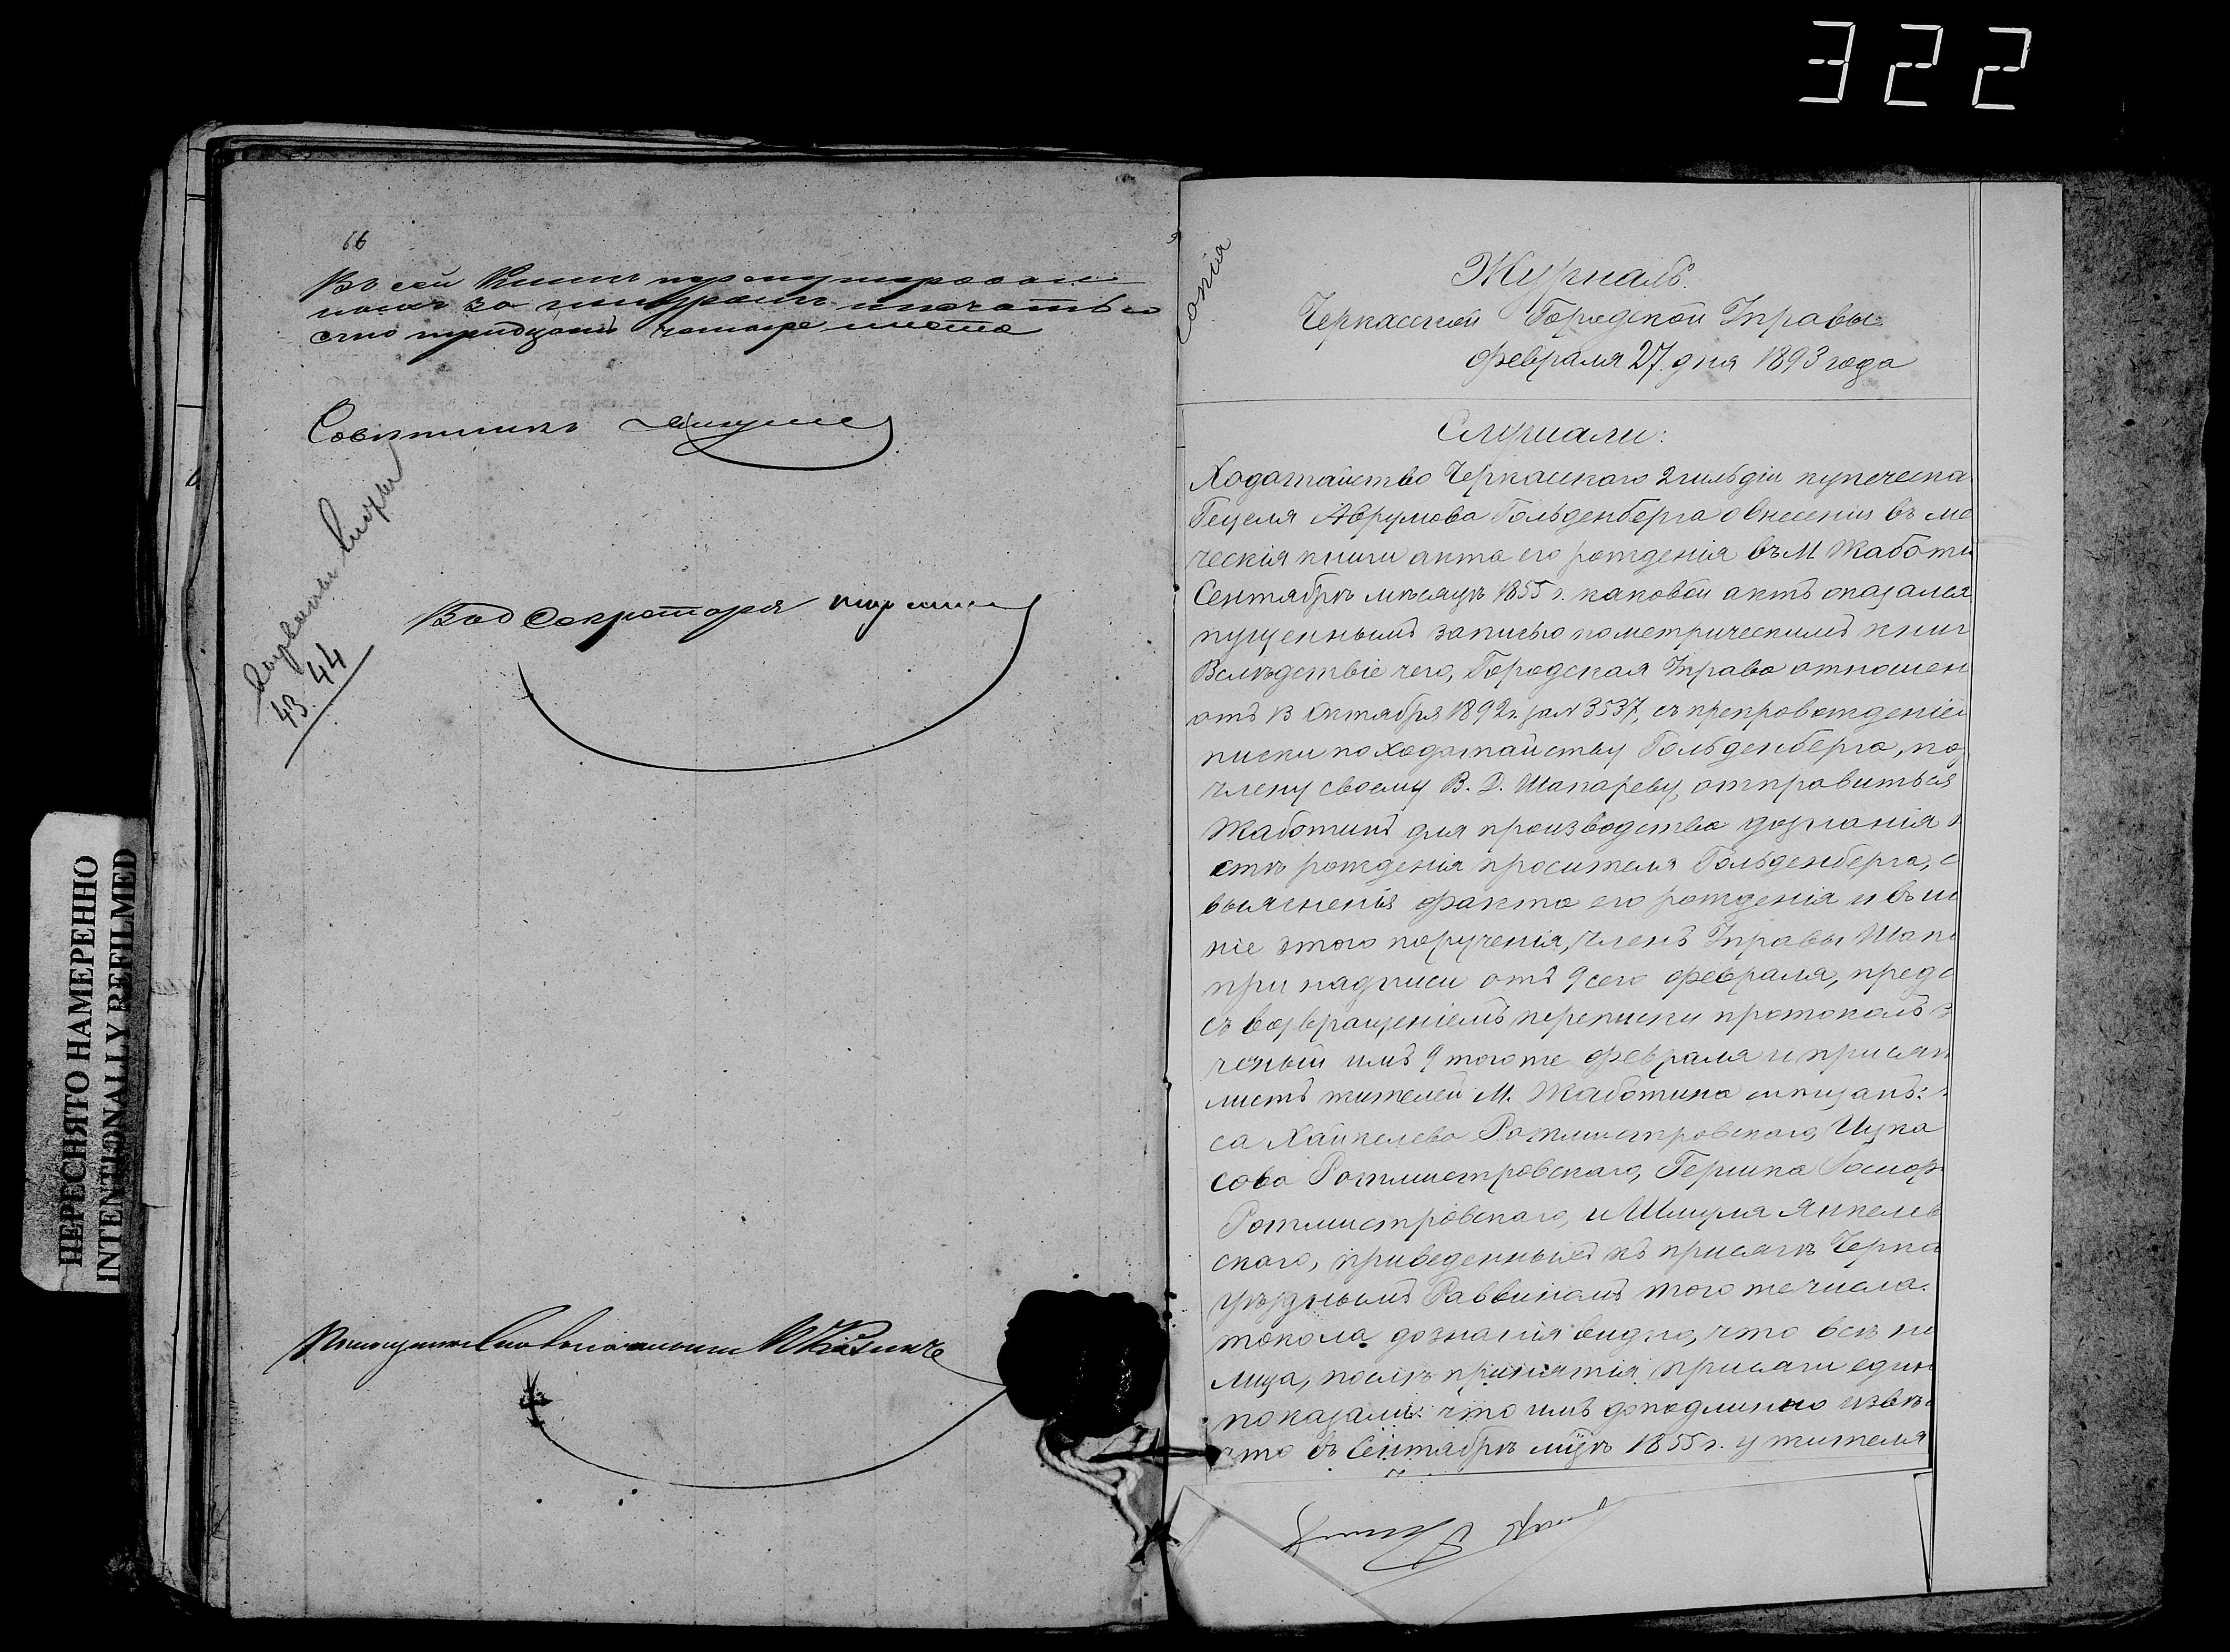 322
66
Въ сей Книгѣ пронумерован
ныхъ за шнуромъ и печатью
сто тридцать четыре листа
Совѣтникъ
43. 44
Секретаря
ПЕРЕСНЯТО НАМЕРЕННО
INTENTIONALLY REFILMED
Копія
Журналъ
Черкасской Городской Управы
Февраля 27 дня 1893 года
Слушали:
Ходатайство Черкасскаго 2 гильдіи купеческа
Гецеля Аврумова Гольденберга о внесеніи въ ме
ческія книги акта его рожденія въ М Жаботи
Сентябрѣ мѣсяцѣ 1855 г. каковой актъ оказался
пущеннымъ записью по метрическимъ книг
Вслѣдствіе чего, Городская Управа отношен
отъ 13 Октября 1892 г. за N 3537, съ препровожденіе
писки по ходатайству Гольденберга, по
члену своему В. Д. Шапареву, отправиться
Жаботинъ для производства дознанія
стѣ рожденія просителя Гольденберга, с
выясненія факта его рожденія и въ и
ніе этого порученія, членъ Управы Шап
при надписи отъ 9 сего февраля, предс
съ возвращеніемъ переписки протоколъ
ченый имъ 9 того же февраля и присяж
листъ жителей М. Жаботина
са Хайкелева Ротмистровскаго, Ицка
сова Ротмистровскаго, Гершка Iосиф
Ротмистровскаго, и Шмуля Янкелев
скаго, приведенныхъ къ присягѣ Черка
уѣзднымъ Раввиномъ того же числа.
токола дознанія видно, что всѣ по
лица, послѣ принятія присяги един
показали: что имъ доподлинно извѣ
что въ Сентябрѣ мцѣ 1855 г. у жителя